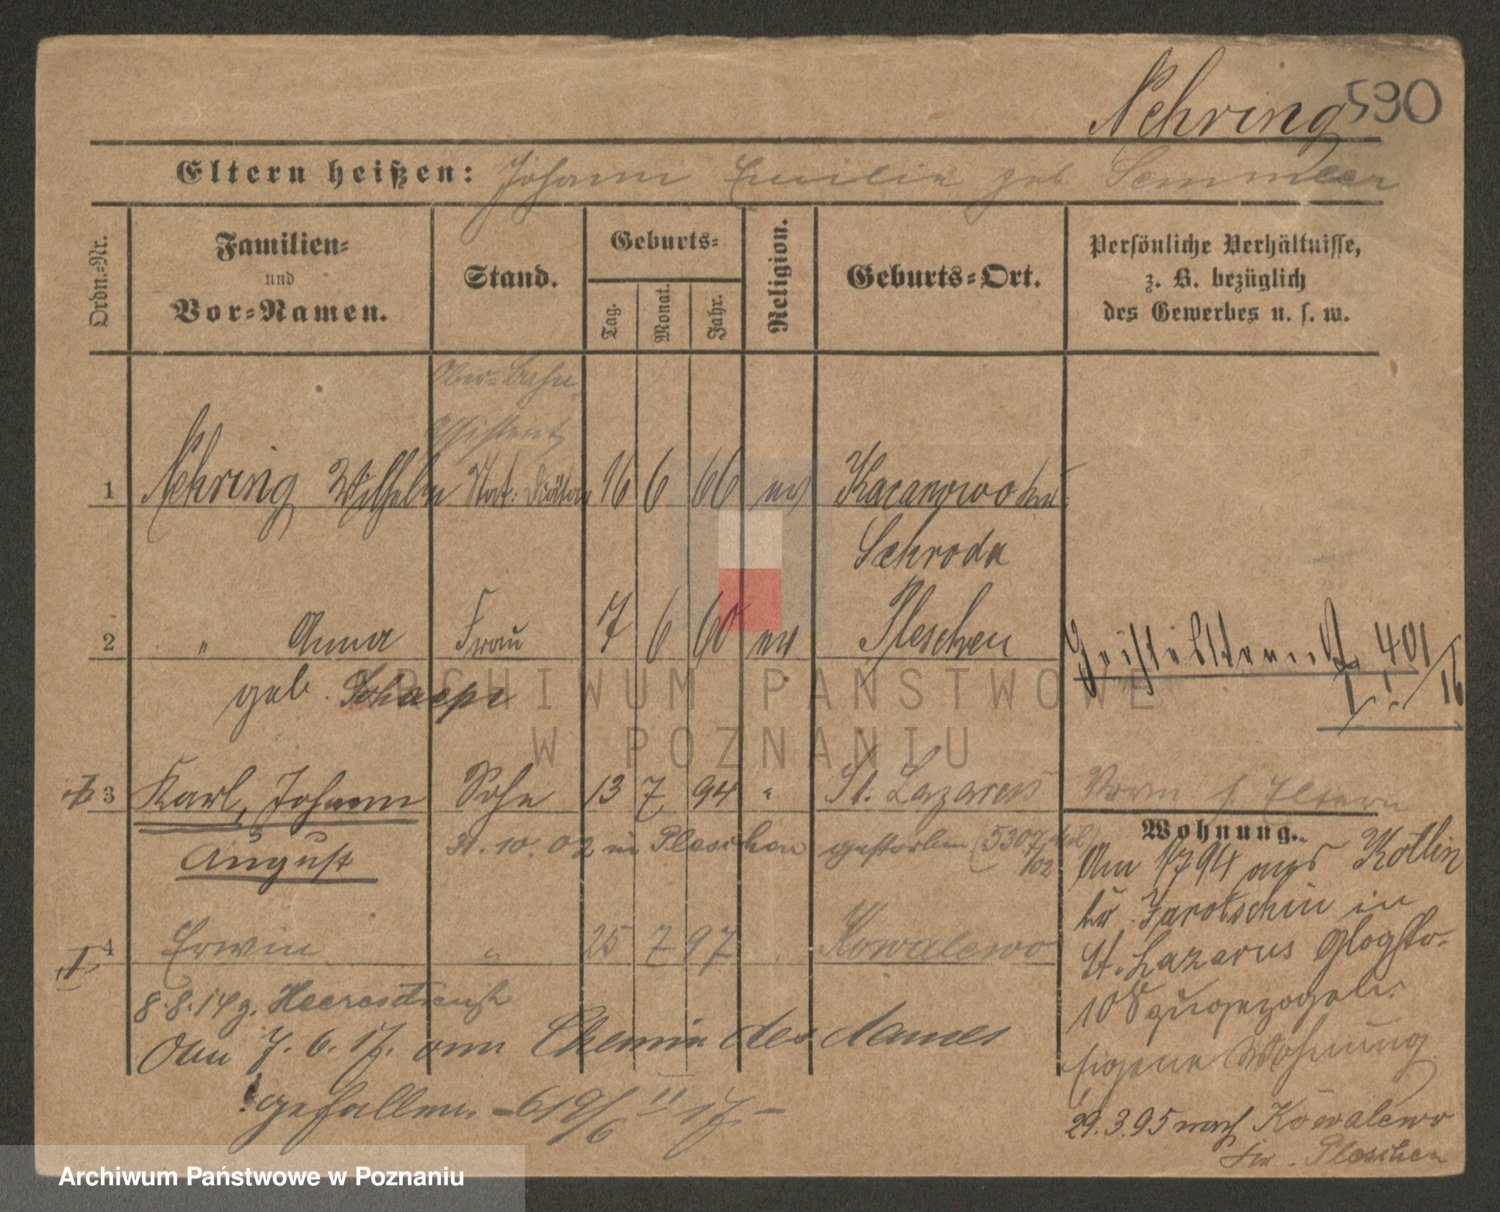 Nehring 590
Eltern heißen: Johann Emilie geb. Semmler
Ordn.-Nr.
Familien-
und
Vor-Namen.
Stand.
Geburts-
Tag.
Monat.
Jahr.
Religion.
Geburts-Ort.
Persönliche Verhältnisse,
z. B. bezüglich
des Gewerbes u. s. w.
Ober-Bahn
Assistent
1 Nehring Wilhelm Stat. Diätar 16 6 66 ev Kacanowo
Schroda
2 " Anna Frau 7 6 60 ev Pleschen
geb. Schaepe
401
16
3 Karl, Johann Sohn 13 7 94 " St. Lazarus
August
31.10.02 in Pleschen gestorben (5307
02
4 Erwin " 25 7 97 Kowalewo
8.8.14 z. Heeresdienst
Am 7.6.17. am Chemin des dames
gefallen. - 619/6 II 17. -
Vorm f. Eltern
Wohnung.
Am 1794 aus Kotlin
Kr. Jarotschin in
St. Lazarus Glogstr.
108 zugezogen.
Eigene Wohnung
29.3.95 nach Kowalewo
Kr. Pleschen
ARCHIWUM PAŃSTWOWE
W POZNANIU
Archiwum Państwowe w Poznaniu